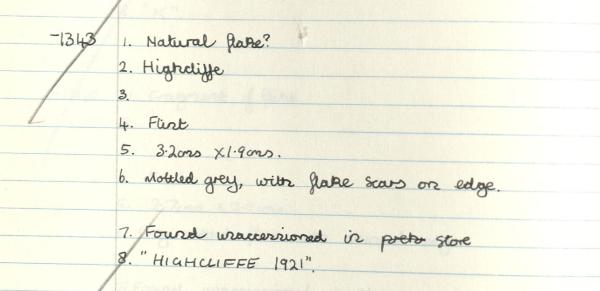 -1343 1. Natural flake?
2. Highcliffe
3.
4. Flint
5. 3.2cms x 1.9cms.
6. Mottled grey, with flake scars on edge.
7. Found unaccessioned in store
8. "HIGHCLIFFE 1921".